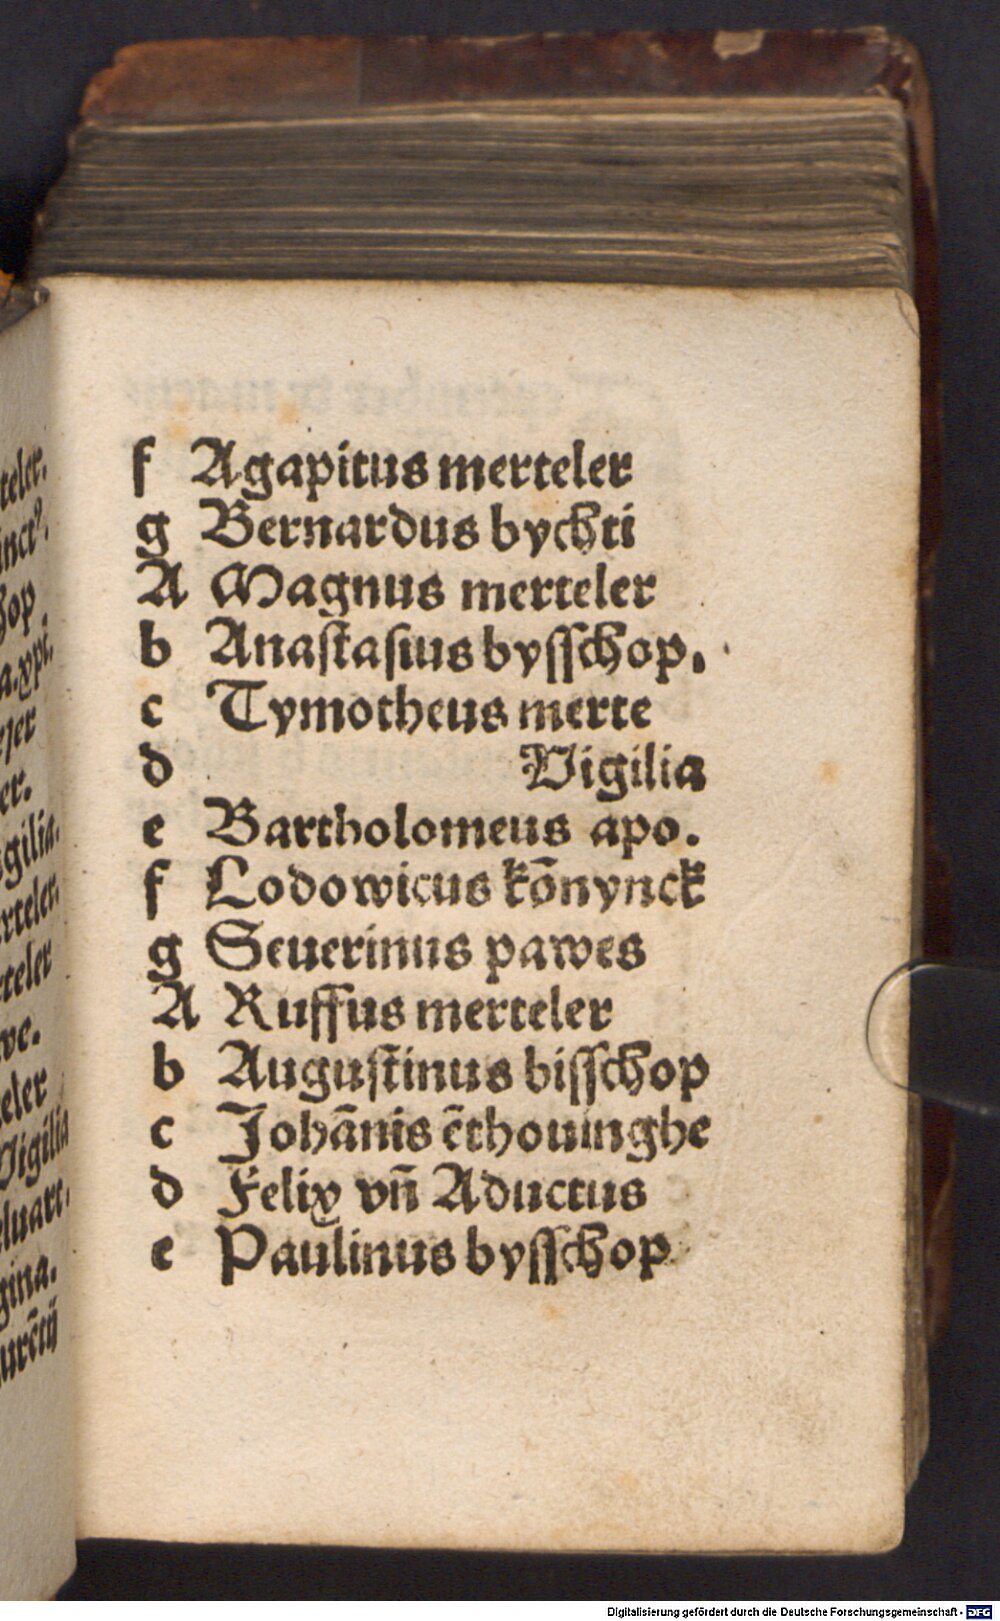 f Agapitus merteler
g Bernardus bychti
A Magnus merteler
b Anastasius bysschop.
c Tymotheus merte
d Vigilia
e Bartholomeus apo.
f Lodowicus kōnynck
g Seuerinus pawes
A Ruffus merteler
b Augustinus bisschop
c Johānis ēthouinghe
d Felix vn̄ Aductus
e Paulinus bysschop
teler.
hop
er.
gilia.
rteler.
teler
we.
eler
Vigilia
gina.
Digitalisierung gefördert durch die Deutsche Forschungsgemeinschaft - DFG